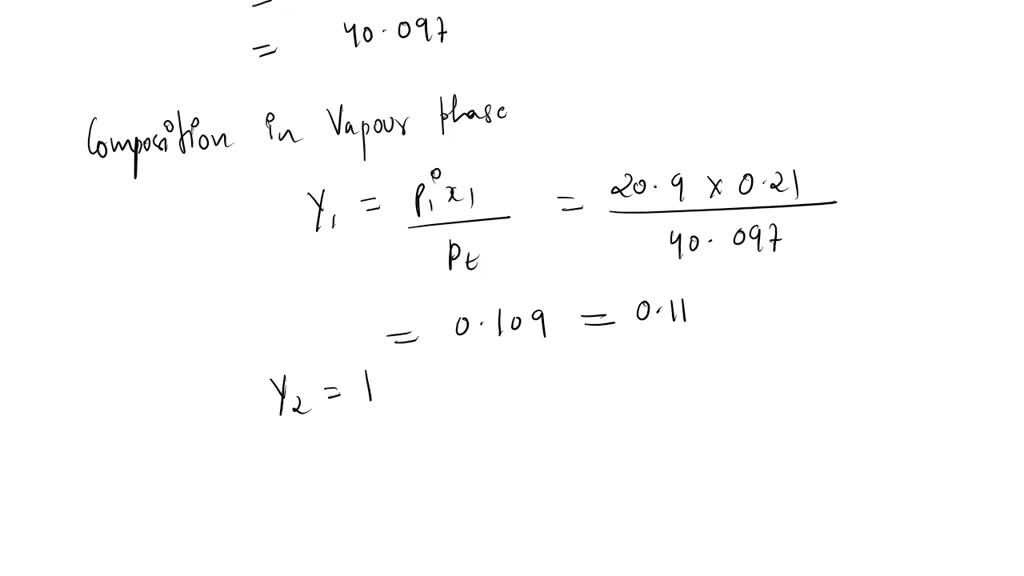 = 40.097
Composition in Vapour phase
Y₁ = P₁⁰x₁ / Pt = 20.9 x 0.21 / 40.097
= 0.109 = 0.11
Y₂ = 1